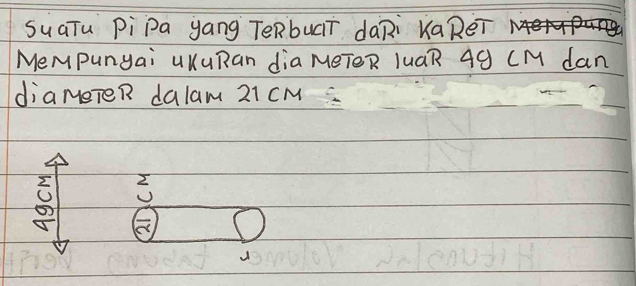 Suatu Pipa yang Terbuat dari Karet Mempung
Mempunyai ukuran diameter luar 49 CM dan
diameter dalam 21 CM
49 CM
21 CM